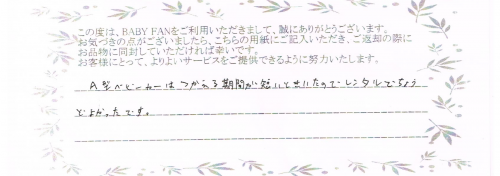 この度は、BABY FANをご利用いただきまして、誠にありがとうございます。
お気づきの点がございましたら、こちらの用紙にご記入いただき、ご返却の際に
お品物に同封していただければ幸いです。
お客様にとって、よりよいサービスをご提供できるように努力いたします。
A型ベビーカーは つかわる期間が短いときいたので レンタルでちょう
どよかったです。